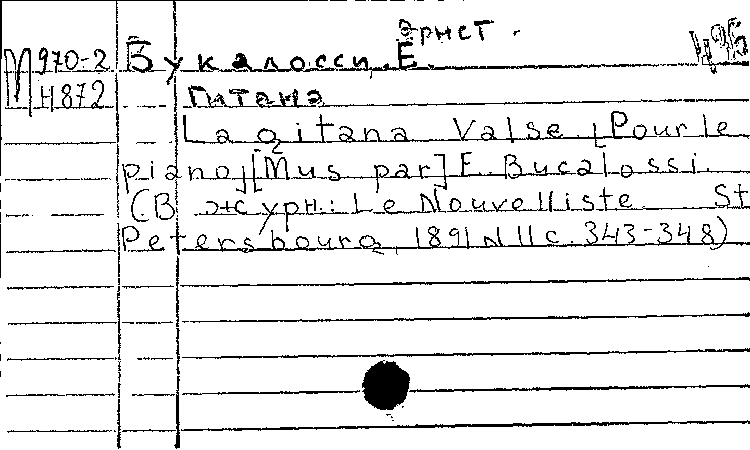 Эрнст.
М 970-2 Букалосси, Е.
Н872 Гитана
La gitana Valse [Pour le
piano] [Mus par] E. Bucalossi.
(В журн.: Le Nouvelliste St
Petersbourg, 1891 N 11 с. 343-348)